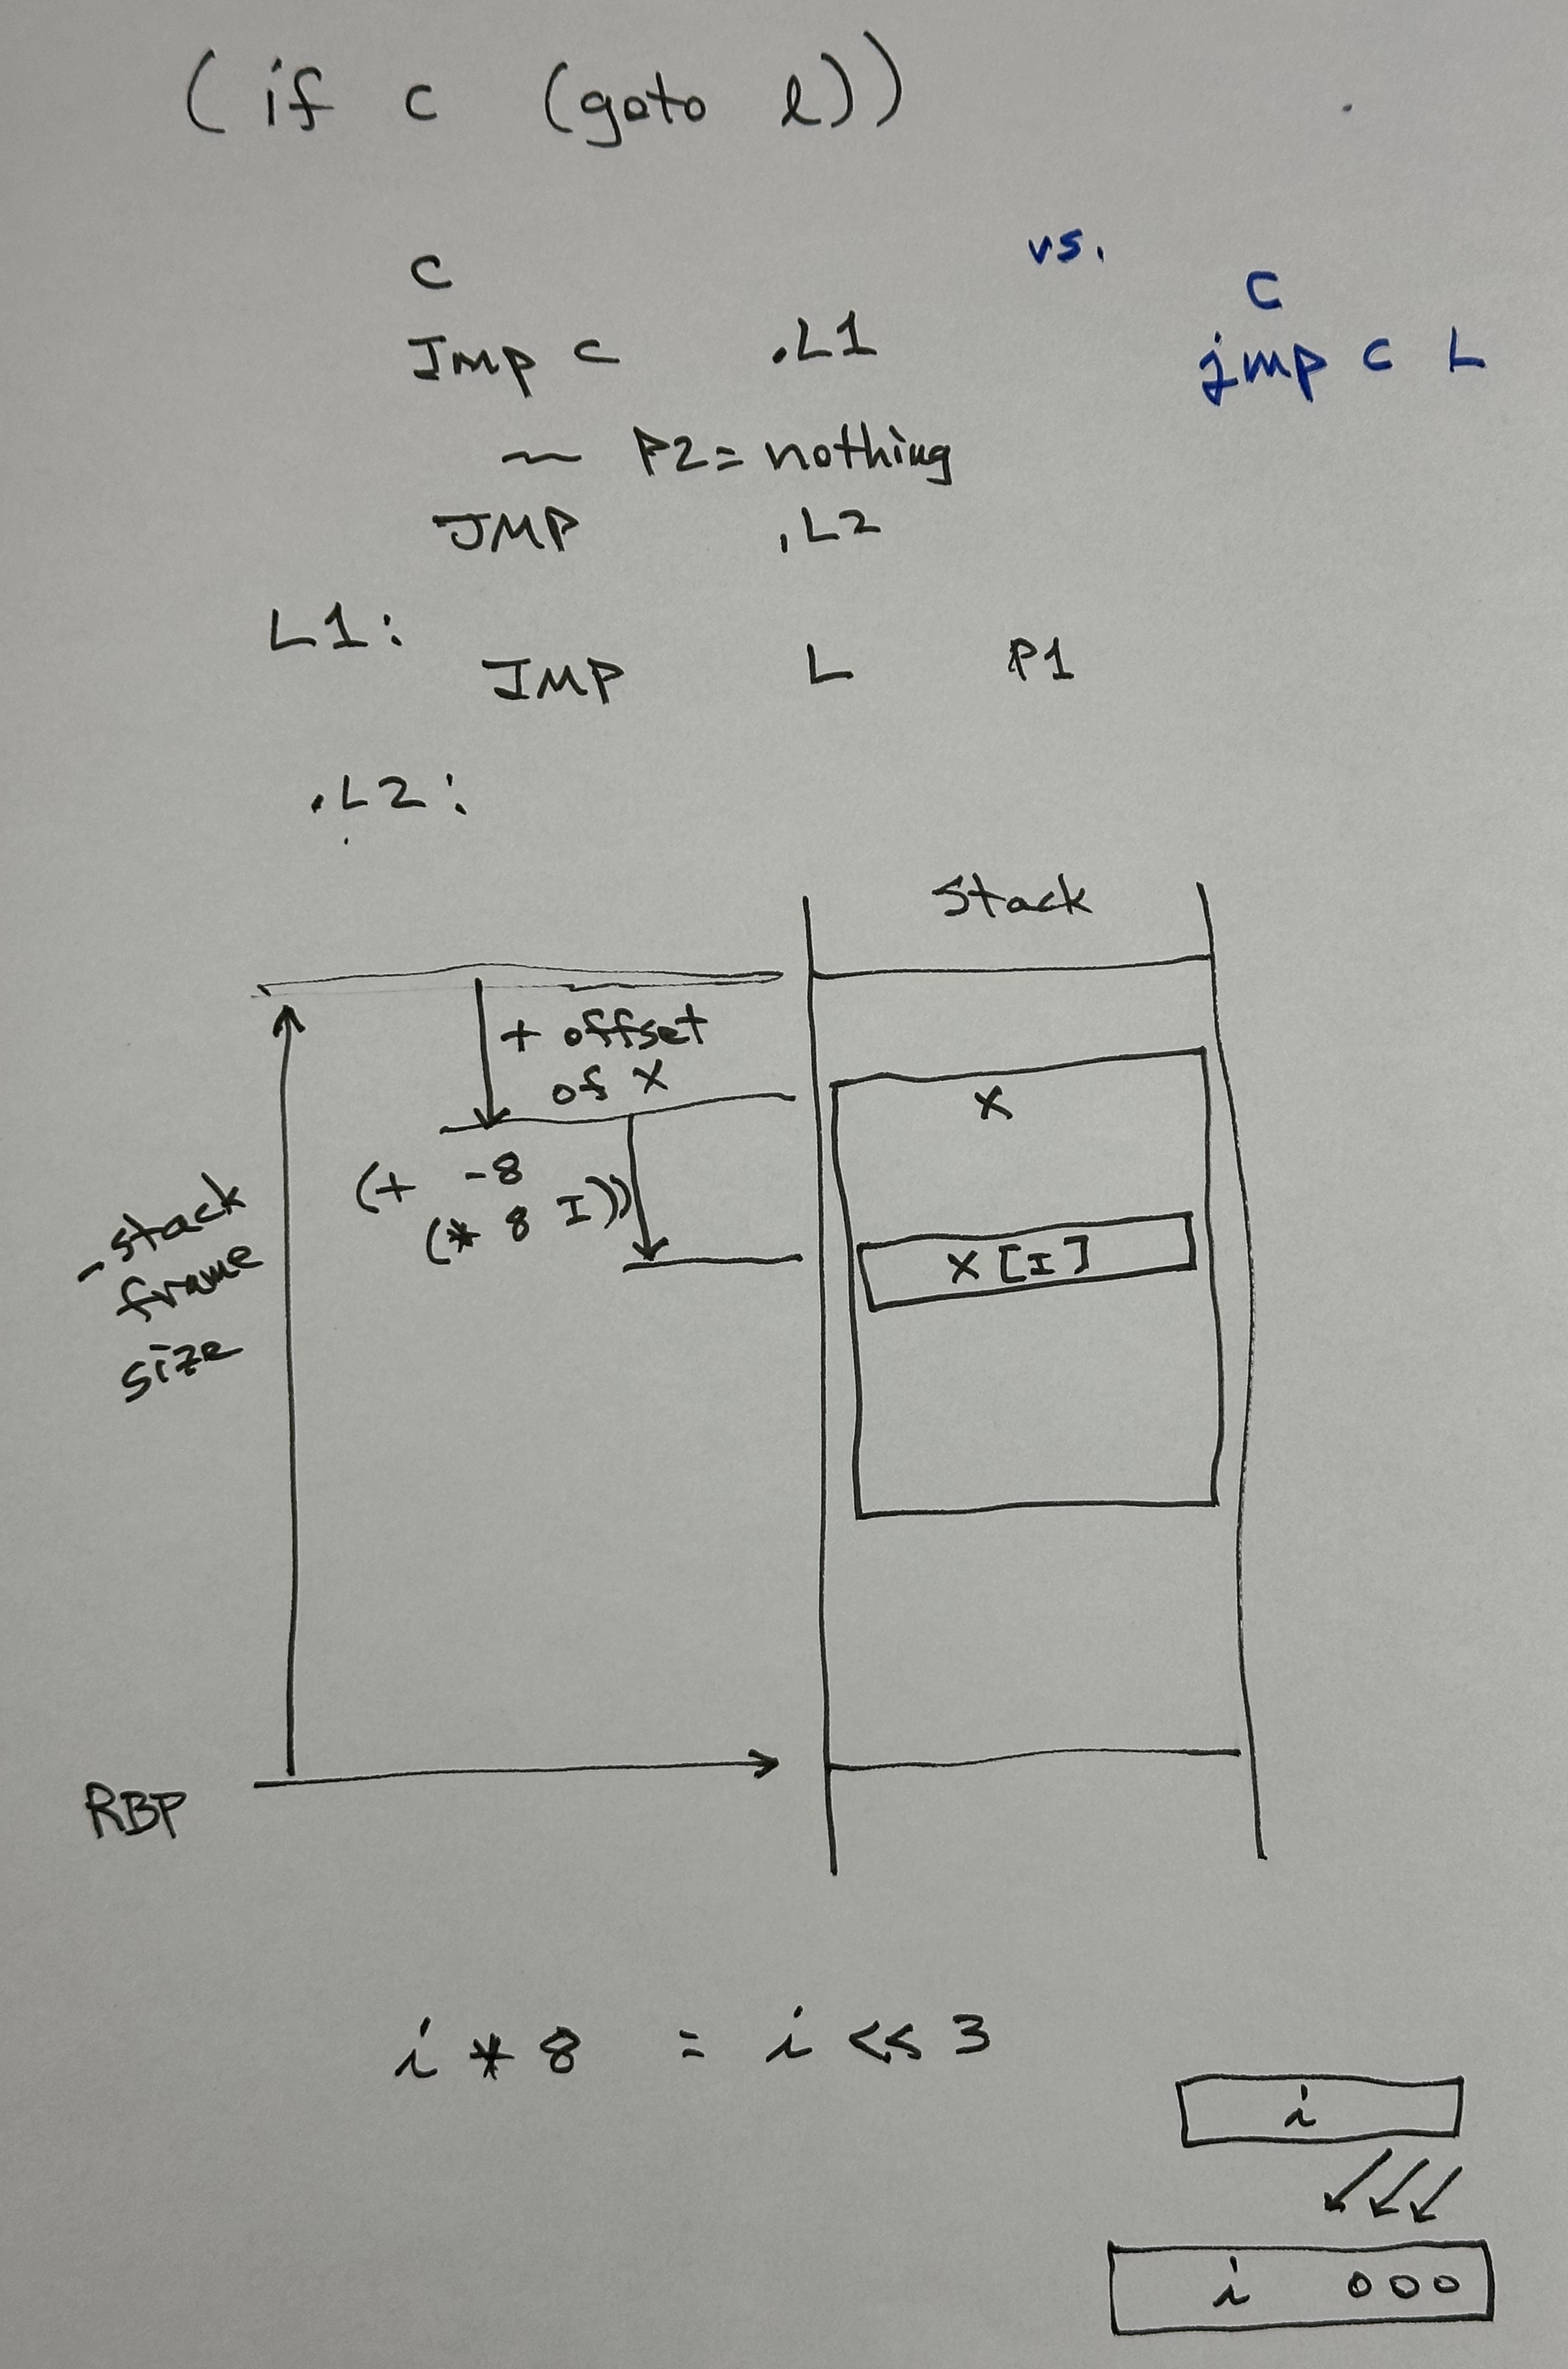 (if c (goto l))
vs.
c
c
Jmp c .L1
jmp c L
~ P2 = nothing
JMP .L2
L1:
JMP L P1
.L2:
Stack
+ offset
of X
X
(+ -8
(* 8 I))
X[I]
-stack
frame
size
RBP
i * 8 = i << 3
i
i 000